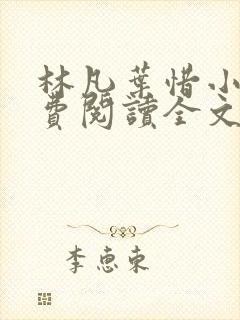 林凡葉惜小
費閱讀全文
李惠東